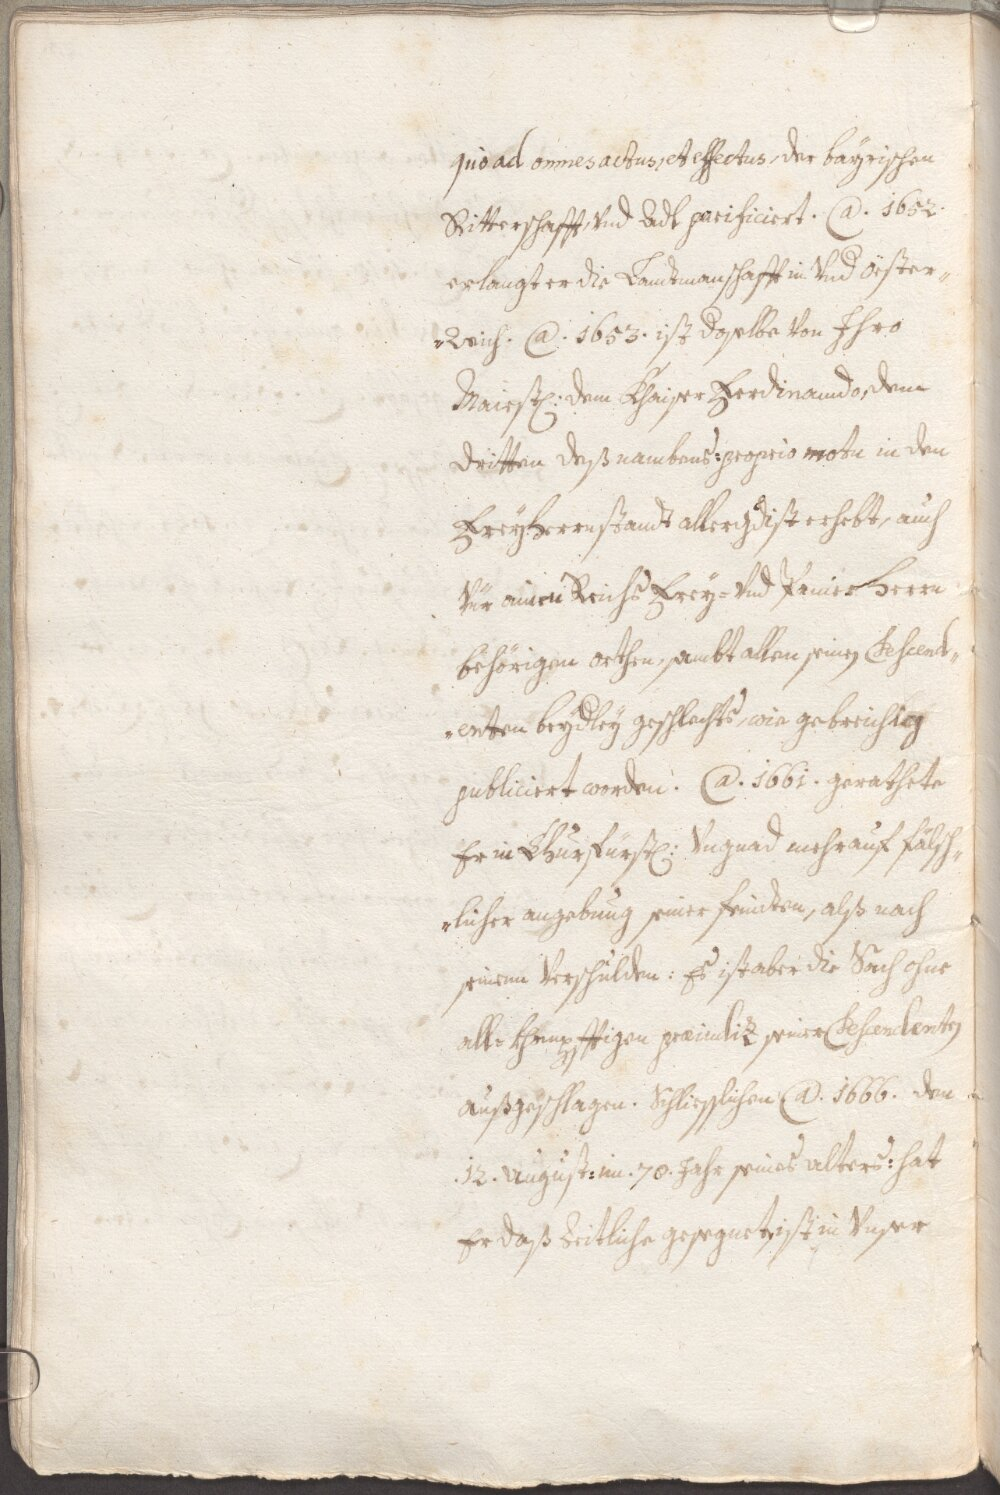 quoad omnes actus, et effectus, der bayrischen
Ritterschafft, vnd Adl parificiert. @. 1652.
erlangt er die Landtmanschafft in vnd Öster„
„Reich. @. 1653. ist derselbe von Ihro
Maiestl: dem Khaiser Ferdinando, dem
dritten deß nambens: proprio motu in den
Freyherrnstandt allergdist erhebt, auch
für ainen Reichs Frey= vnd Panier Herrn
behörigen orthen, sambt allen seinen Descend„
„enten beydley geschlechts, wie gebreichig
publiciert worden. @. 1661. gerathete
Er in Churfürstl: Vngnad mehr auf fälsch„
„licher angebung seiner feindten, alß nach
seinem verschulden: Es ist aber die Sach ohne
alle khünfftigen præiudiz seiner Descendenten
außgeschlagen. Schliesslichen @. 1666. den
.12. August: im .70. Jahr seines alters: hat
Er daß Zeitliche gesegnet, ist in Vnser